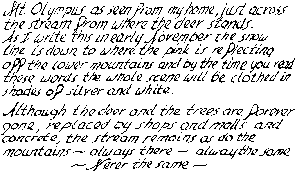 Mt. Olympus as seen from my home, just across
the stream from where the deer stands.
As I write this in early November the snow
line is down to where the pink is reflecting
off the lower mountains and by the time you read
these words the whole scene will be clothed in
shades of silver and white.
Although the deer and the trees are forever
gone, replaced by shops and malls and
concrete, the stream remains as do the
mountains — always there — alway the same
— Never the same —